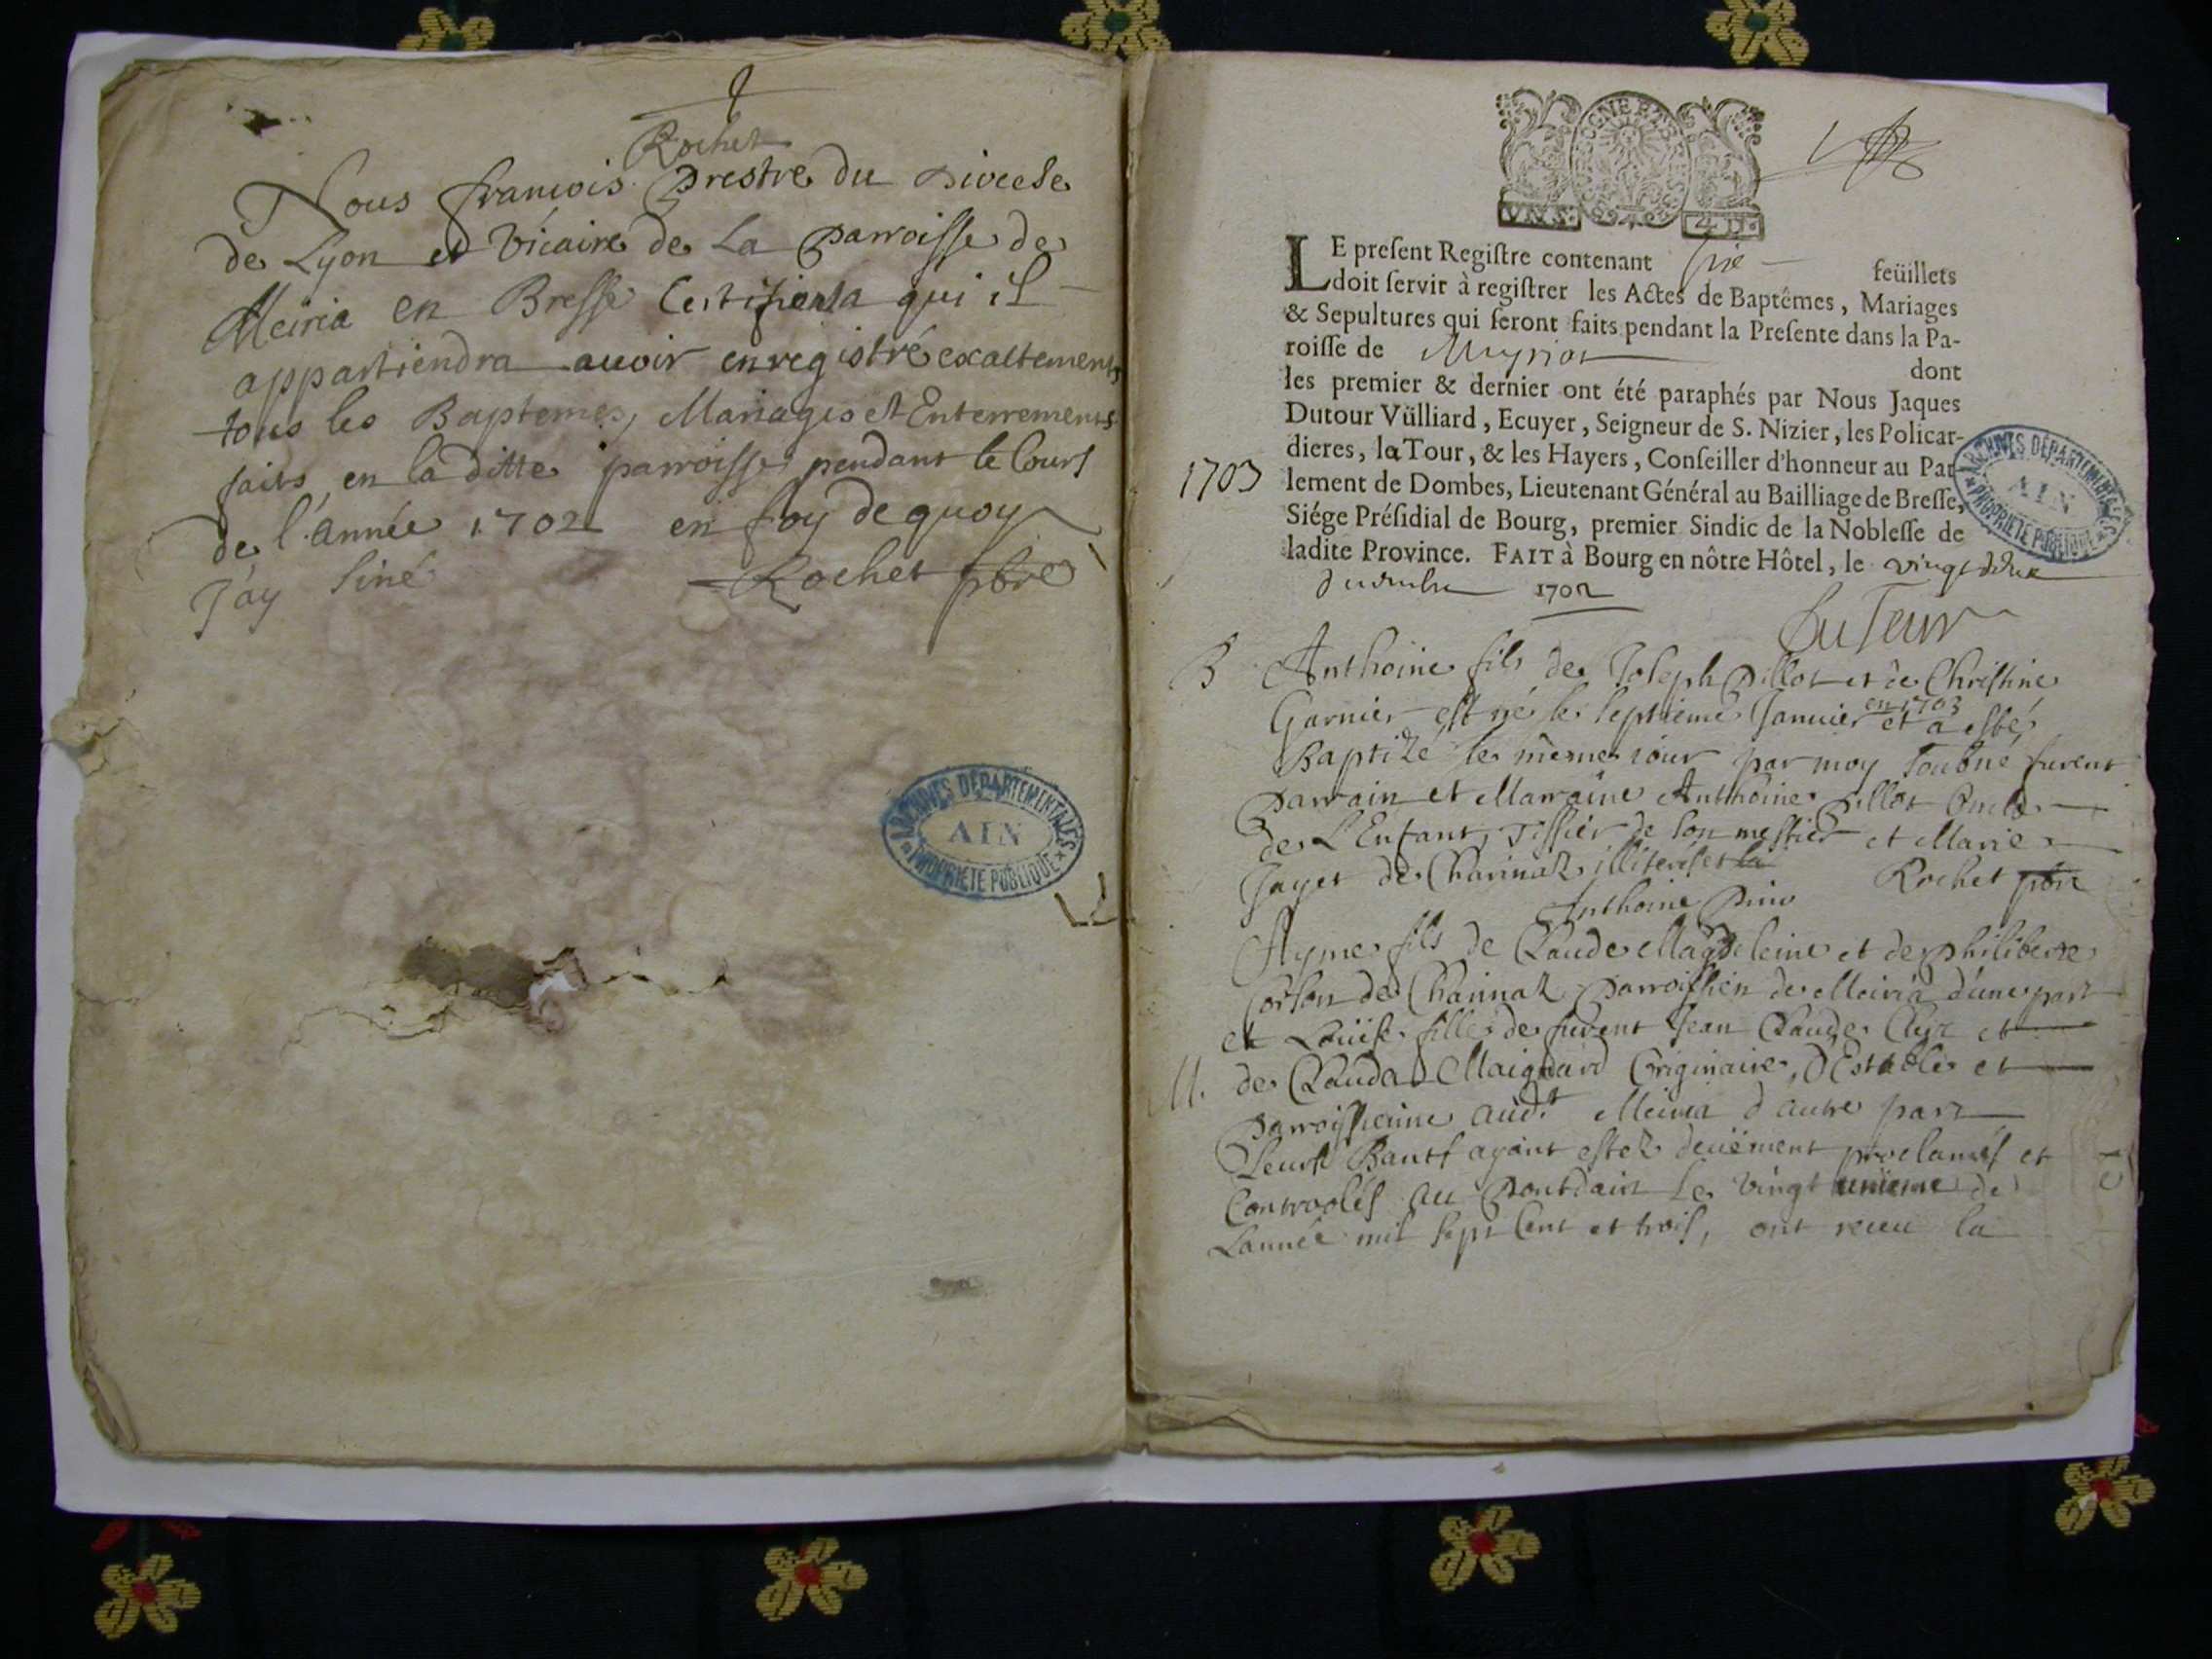 Rochet
Nous françois prestre du diocese
de Lyon et vicaire de La parroisse de
Meiria en Bresse Certifions a qui il
appartiendra avoir enregistré exactement
tous les Baptemes, Mariages et Enterrements
faits en la ditte parroisse pendant le Cours
de l'année 1702 en foy de quoy
J'ay siné Rochet pbre
ARCHIVES DÉPARTEMENTALES
AIN
PROPRIÉTÉ PUBLIQUE
VN S. 4 D.
LE preſent Regiſtre contenant ſix feüillets
doit ſervir à regiſtrer les Actes de Baptêmes, Mariages
& Sepultures qui ſeront faits pendant la Preſente dans la Pa-
roiſſe de Meyriat dont
les premier & dernier ont été paraphés par Nous Jaques
Dutour Vülliard, Ecuyer, Seigneur de S. Nizier, les Policar-
dieres, la Tour, & les Hayers, Conſeiller d'honneur au Par-
1703 lement de Dombes, Lieutenant Général au Bailliage de Breſſe,
Siége Préſidial de Bourg, premier Sindic de la Nobleſſe de
ladite Province. FAIT à Bourg en nôtre Hôtel, le vingt deux
decembre 1702
DuTour
ARCHIVES DÉPARTEMENTALES
AIN
PROPRIÉTÉ PUBLIQUE
B Anthoine fils de Joseph pillot et de Christine
Garnier est né le septieme Janvier en 1703 et a esté
Baptizé le meme iour par moy soubné furent
parrain et Marraine Anthoine pillot oncle
de L'Enfant, Tissier de son mestier et Marie
Jayet de Charinaz illiterés et la
Anthoine Rochet pbre
Ayme fils de Claude Magdeleine et de philiberte
de Charinaz parroissien de Meiria d'une part
et Loüise fille de furent Jean Claude et
M. de Clauda Maignard Originaire, d'Estables et
parroissienne aud.t Meiria d'autre part
Leurs Bants ayant estez deuëment proclamés et
Controolés au pontdain le vingt unieme de
L'année mil sept cent et trois, ont receu la